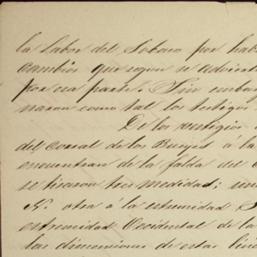 la Labor del Sobaco por hab
cambios que segun se advierte
por una parte. Sin embar
naron como tal los testigos
De los vestigios
del Corral de los Bueyes á la
encuentran de la falda del
se tiraron tres medidas: un
N. otra á la estremidad S
estremidad Occidental de la
las dimensiones de estas line